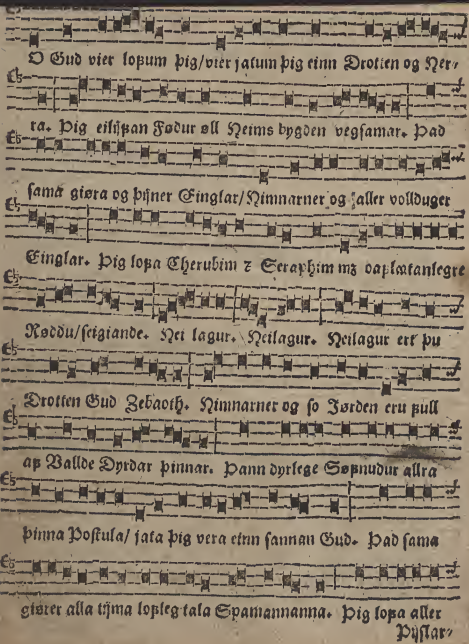 O Gud vier lofum þig/vier jatum þig einn Drotten og Her-
ra. Þig eilijfan Fødur øll Heims bygden vegsamar. Það
sama giøra og þijner Einglar/Himnarner og aller vollduger
Einglar. Þig lofa Cherubim ꝛ Seraphim mz oaflatanlegre
Røddu/seigiande. Hei lagur. Heilagur. Heilagur ert þu
Drotten Gud Zebaoth. Himnarner og so Jørden eru full
af Vallde Dyrdar þinnar. Þann dyrlege Søfnudur allra
þinna Postula/ jata þig vera einn sannan Gud. Það sama
giører alla tijma lofleg tala Spamannanna. Þig lofa aller
Pijslar-